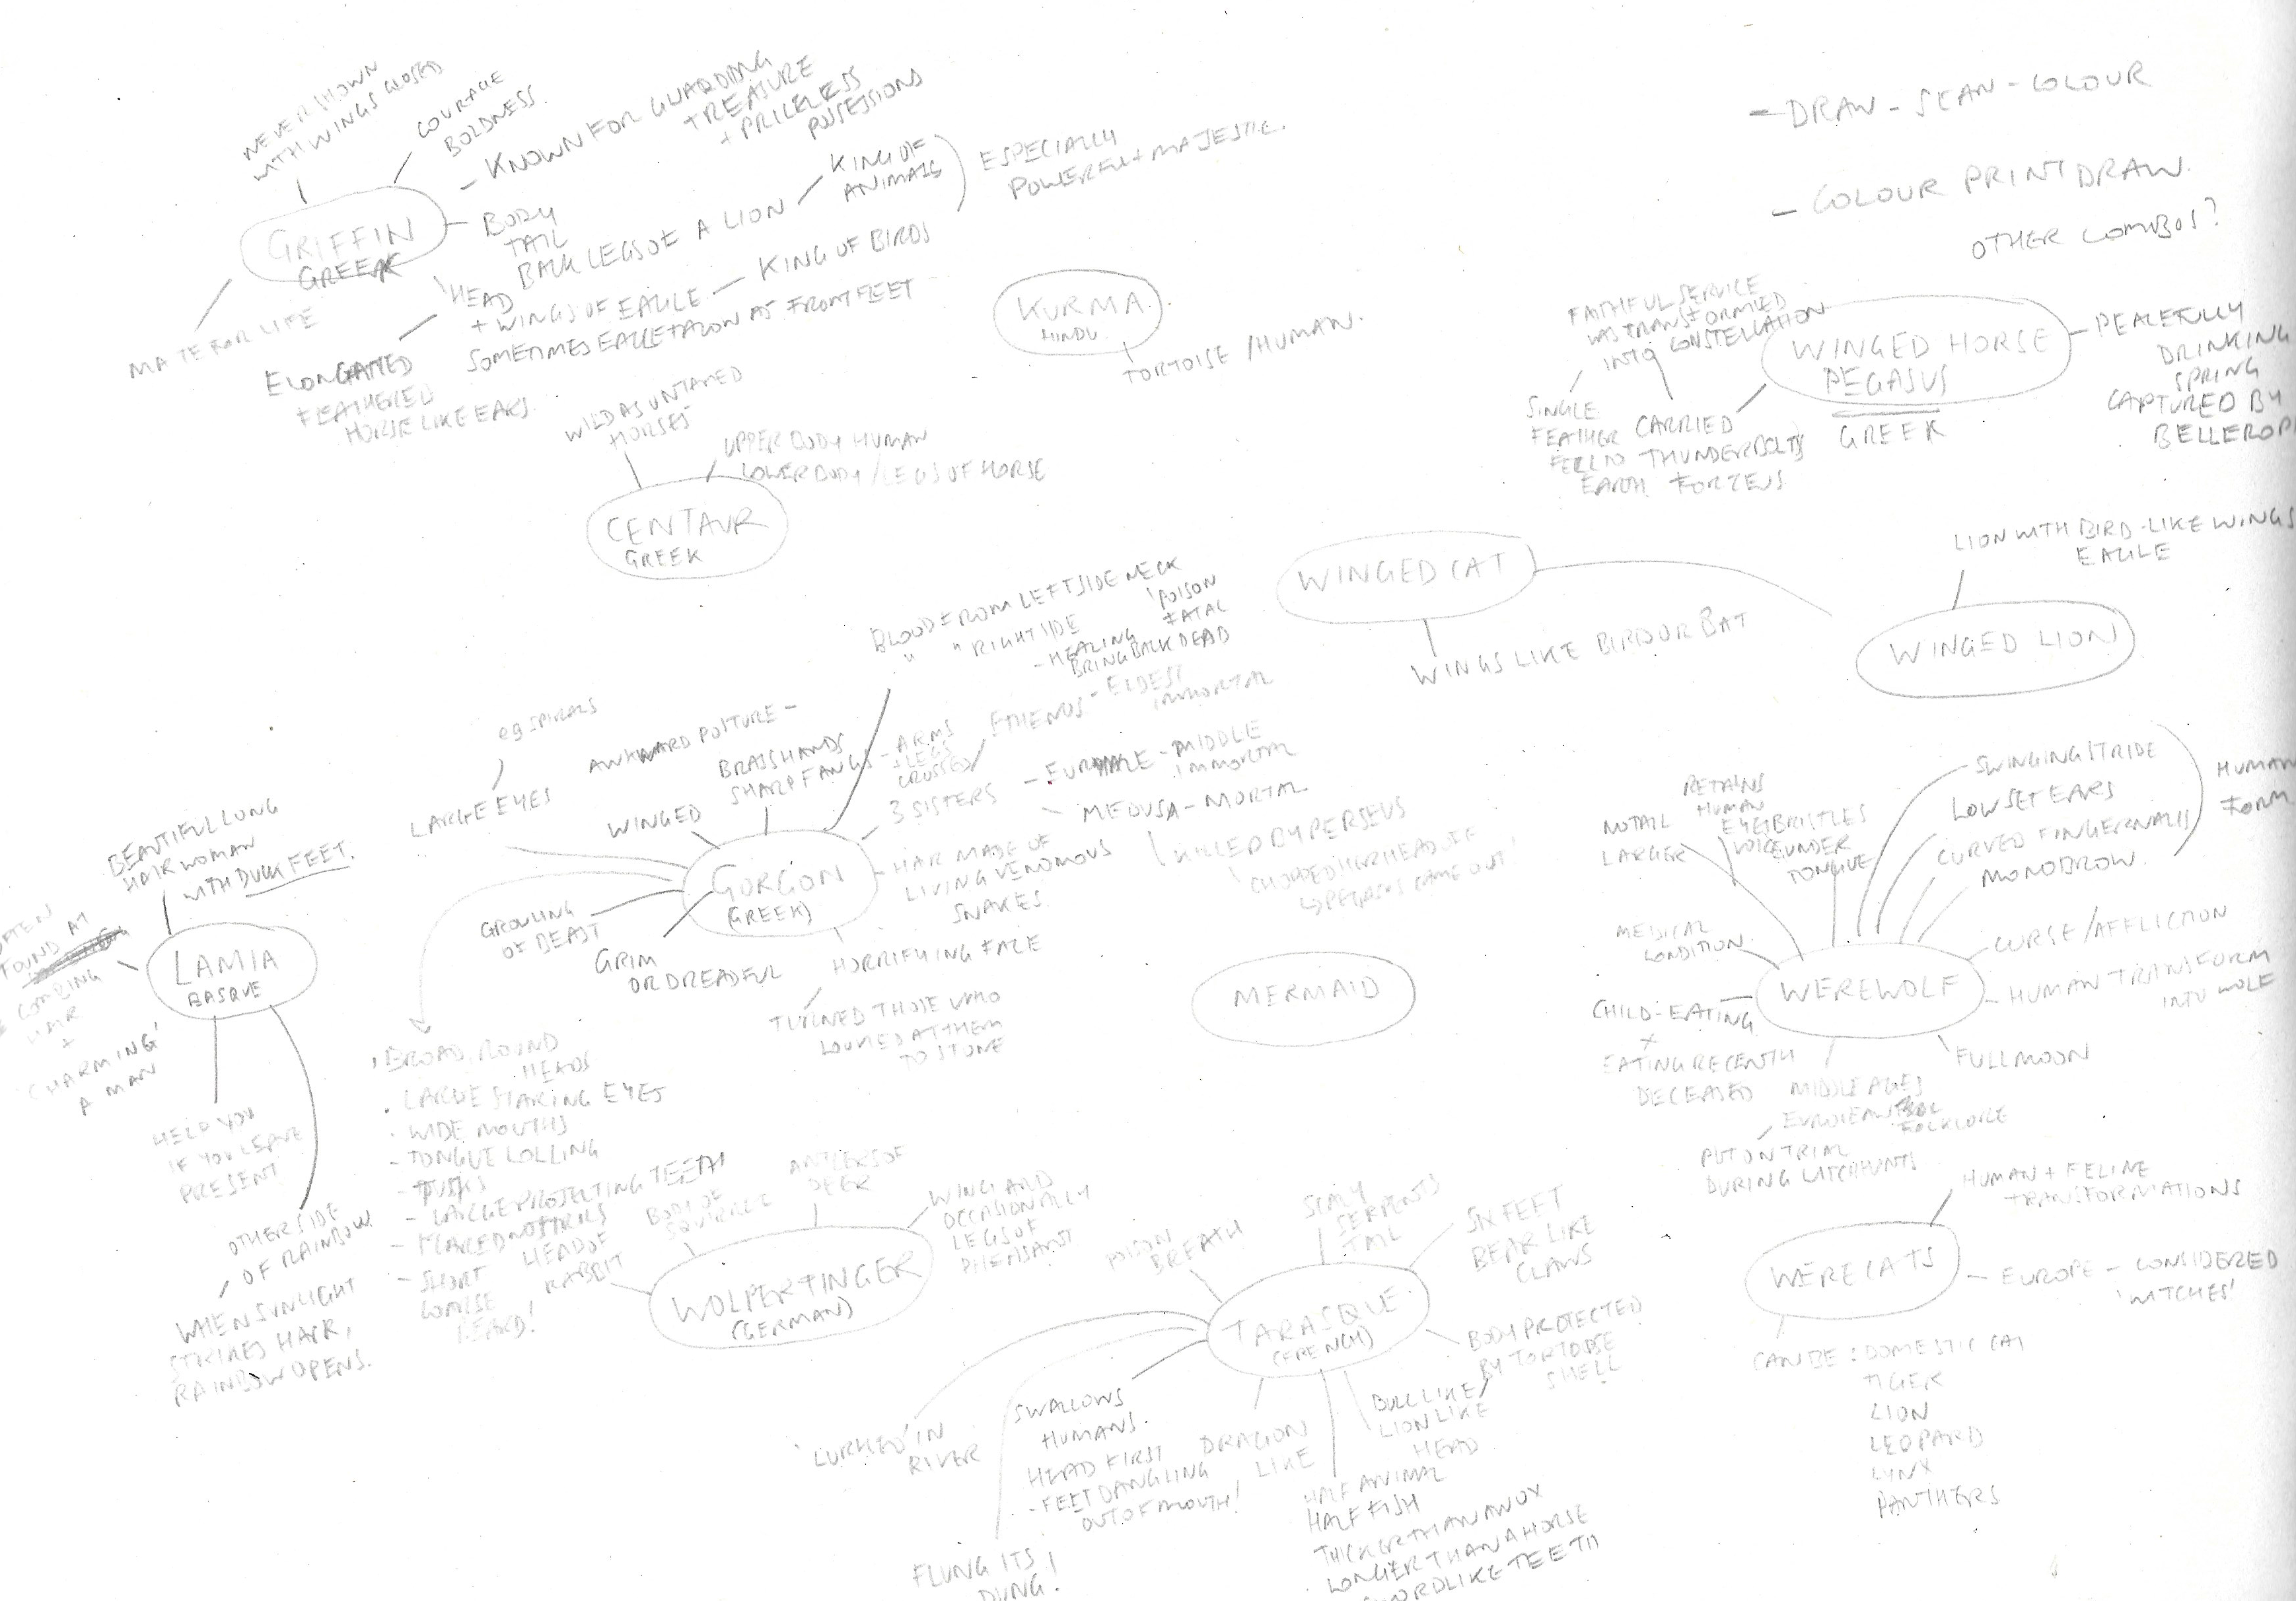 NEVER SHOWN
WITH WINGS CLOSED
COURAGE
BOLDNESS.
- KNOWN FOR GUARDING
TREASURE
+ PRICELESS
POSSESSIONS
GRIFFIN
GREEK
- BODY
TAIL
BACK LEGS OF A LION
KING OF
ANIMALS
ESPECIALLY
POWERFUL + MAJESTIC.
HEAD
+ WINGS OF EAGLE - KING OF BIRDS
SOMETIMES EAGLE TALON AS FRONT FEET
MATE FOR LIFE
ELONGATED
FEATHERED
HORSE LIKE EARS.
- DRAW - SCAN - COLOUR
- COLOUR PRINT DRAW.
OTHER COMBOS?
KURMA
HINDU
TORTOISE / HUMAN.
FAITHFUL SERVICE
WAS TRANSFORMED
INTO CONSTELLATION
WINGED HORSE
PEGASUS
GREEK
- PEACEFULLY
DRINKING
SPRING
CAPTURED BY
SINGLE
FEATHER
FELL TO
EARTH
CARRIED
THUNDERBOLTS
FOR ZEUS
WILD AS UNTAMED
HORSES
UPPER BODY HUMAN
LOWER BODY / LEGS OF HORSE
CENTAUR
GREEK
WINGED CAT
WINGS LIKE BIRD OR BAT
LION WITH BIRD-LIKE WINGS
EAGLE
WINGED LION
BLOOD FROM LEFT SIDE NECK
'POISON
FATAL
" " RIGHT SIDE
- HEALING
BRING BACK DEAD
eg SPIRALS
LARGE EYES
AWKWARD POSTURE -
ARMS
LEGS
CROSSED
WINGED
BRASS HANDS
SHARP FANGS
3 SISTERS
- ELDEST
IMMORTAL
- MIDDLE
IMMORTAL
MEDUSA - MORTAL
KILLED BY PERSEUS
CHOPPED HER HEAD OFF
PEGASUS CAME OUT!
GORGON
(GREEK)
- HAIR MADE OF
LIVING VENOMOUS
SNAKES.
GROWLING
OF BEAST
GRIM
OR DREADFUL
HORRIFYING FACE
TURNED THOSE WHO
LOOKED AT THEM
TO STONE
BROAD, ROUND
HEADS
. LARGE STARING EYES
. WIDE MOUTHS
- TONGUE LOLLING
- TUSKS
- LARGE PROJECTING TEETH
- FLARED NOSTRILS
- SHORT
COARSE
BEARD!
BEAUTIFUL LONG
HAIR WOMAN
WITH DUCK FEET.
LAMIA
BASQUE
OFTEN
FOUND AT
COMBING
HAIR
+
'CHARMING'
A MAN
HELP YOU
IF YOU LEAVE
PRESENT
OTHER SIDE
OF RAINBOW
WHEN SUNLIGHT
STRIKES HAIR,
RAINBOW OPENS.
MERMAID
NO TAIL
LARGER
RETAINS
HUMAN
EYES
VOICE
BRISTLES
UNDER
TONGUE
SWINGING STRIDE
LOW SET EARS
CURVED FINGERNAILS
MONOBROW.
HUMAN
FORM
MEDICAL
CONDITION.
WEREWOLF
CURSE / AFFLICTION
- HUMAN TRANSFORM
INTO WOLF
FULL MOON
CHILD-EATING
+
EATING RECENTLY
DECEASED
MIDDLE AGES
EUROPEAN
FOLKLORE
PUT ON TRIAL
DURING WITCHHUNTS
HEAD OF
RABBIT
BODY OF
SQUIRREL
ANTLERS OF
DEER
WINGS AND
OCCASIONALLY
LEGS OF
PHEASANT
WOLPERTINGER
(GERMAN)
POISON
BREATH
SCALY
SERPENTS
TAIL
SIX FEET
BEAR LIKE
CLAWS
TARASQUE
(FRENCH)
BODY PROTECTED
BY TORTOISE
SHELL
BULL LIKE /
LION LIKE
HEAD
DRAGON
LIKE
HALF ANIMAL
HALF FISH
THICKER THAN AN OX
LONGER THAN A HORSE
SWORDLIKE TEETH
'LURKED' IN
RIVER
SWALLOWS
HUMANS.
HEAD FIRST
- FEET DANGLING
OUT OF MOUTH!
FLUNG ITS
DUNG!
HUMAN + FELINE
TRANSFORMATIONS
WERECATS
- EUROPE - CONSIDERED
'WITCHES'
CAN BE : DOMESTIC CAT
TIGER
LION
LEOPARD
LYNX
PANTHERS